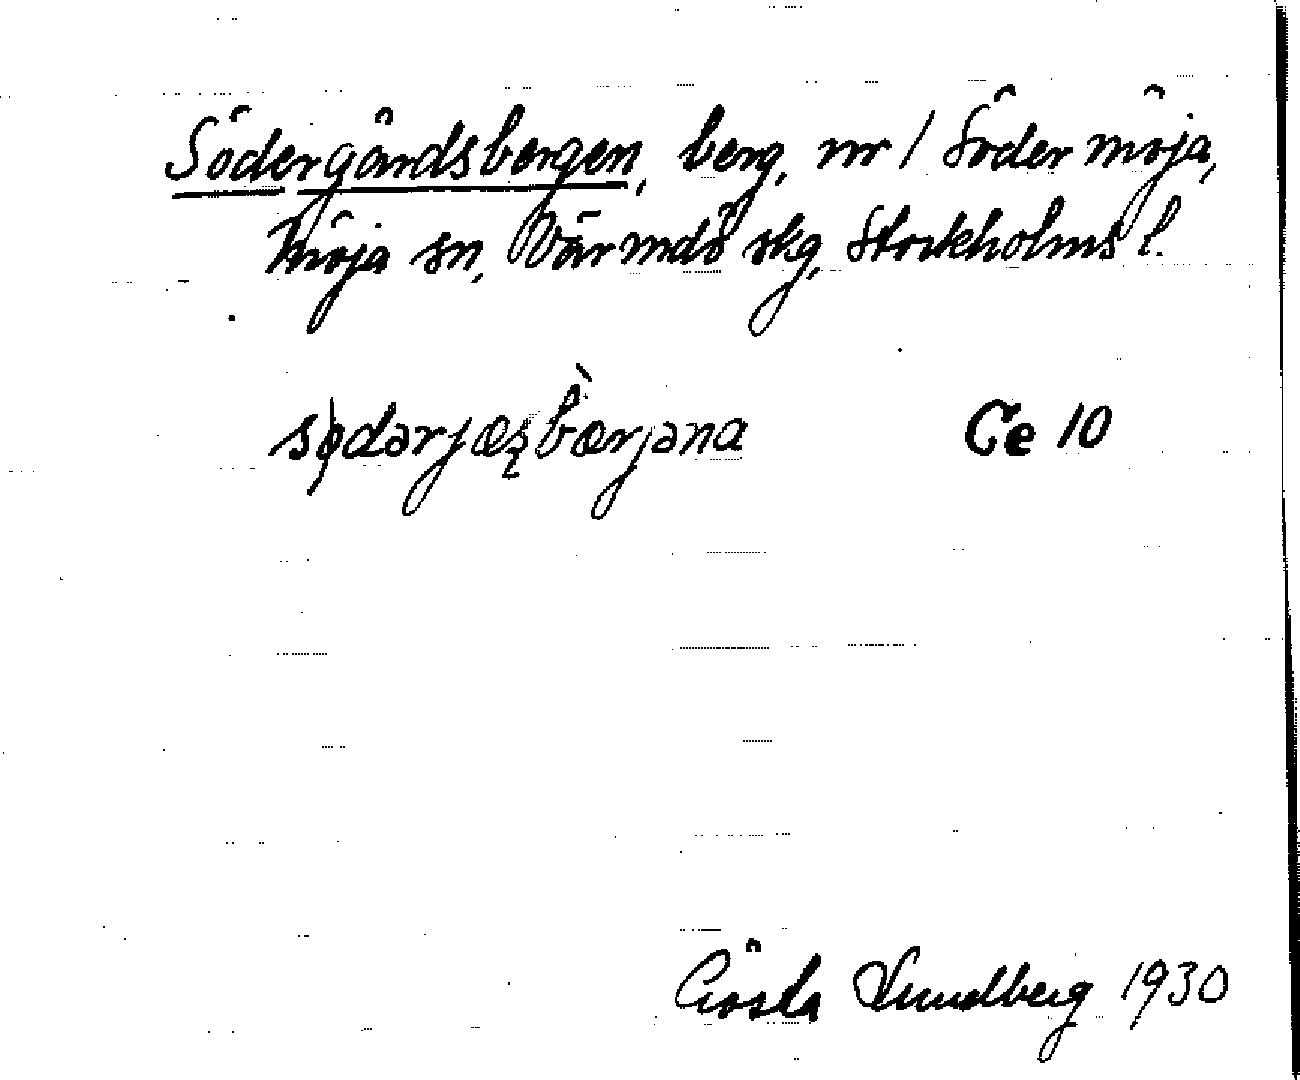 Södergårdsbergen, berg, nr 1 Södermöja,
Möja sn, Värmdö skg, Stockholms l.
sødərjæʂbærjəna Ce 10
Gösta Lundberg 1930